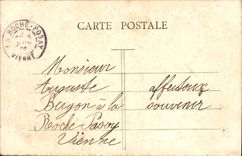 CARTE POSTALE
LA ROCHE-POSAY
VIENNE
Monsieur
Auguste
Bergon à la
Roche-Posay
Vienne
affectueux
souvenir